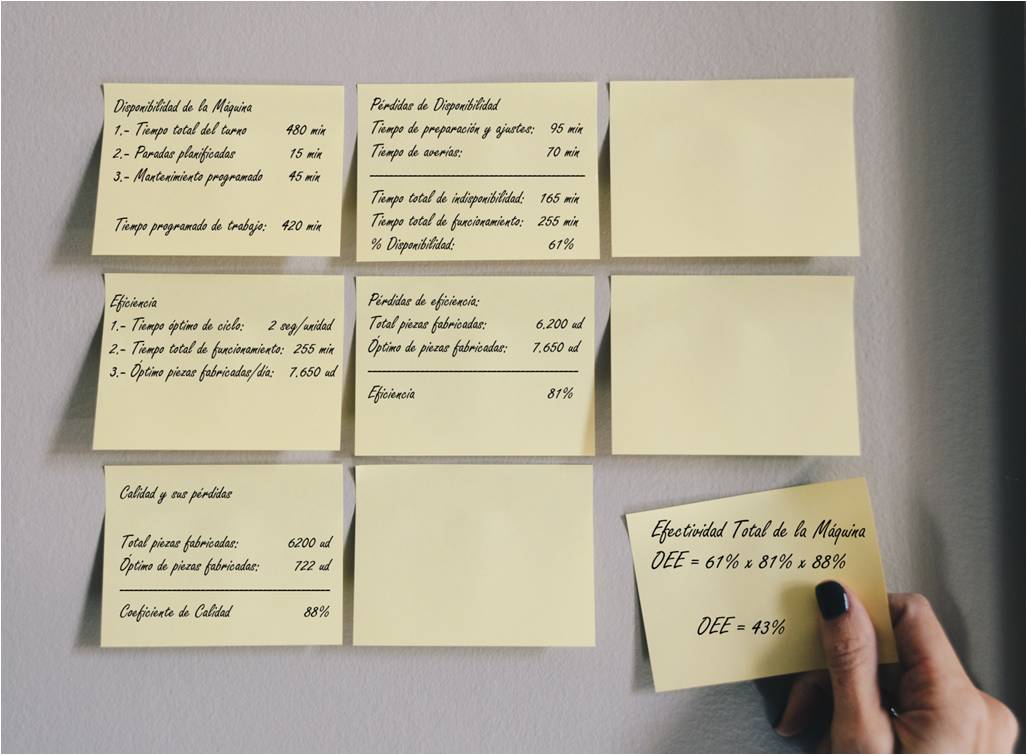 Disponibilidad de la Máquina
1.- Tiempo total del turno 480 min
2.- Paradas planificadas 15 min
3.- Mantenimiento programado 45 min
Tiempo programado de trabajo: 420 min
Pérdidas de Disponibilidad
Tiempo de preparación y ajustes: 95 min
Tiempo de averías: 70 min
Tiempo total de indisponibilidad: 165 min
Tiempo total de funcionamiento: 255 min
% Disponibilidad: 61%
Eficiencia
1.- Tiempo óptimo de ciclo: 2 seg/unidad
2.- Tiempo total de funcionamiento: 255 min
3.- Óptimo piezas fabricadas/día: 7.650 ud
Pérdidas de eficiencia:
Total piezas fabricadas: 6.200 ud
Óptimo de piezas fabricadas: 7.650 ud
Eficiencia 81%
Calidad y sus pérdidas
Total piezas fabricadas: 6200 ud
Óptimo de piezas fabricadas: 722 ud
Coeficiente de Calidad 88%
Efectividad Total de la Máquina
OEE = 61% x 81% x 88%
OEE = 43%